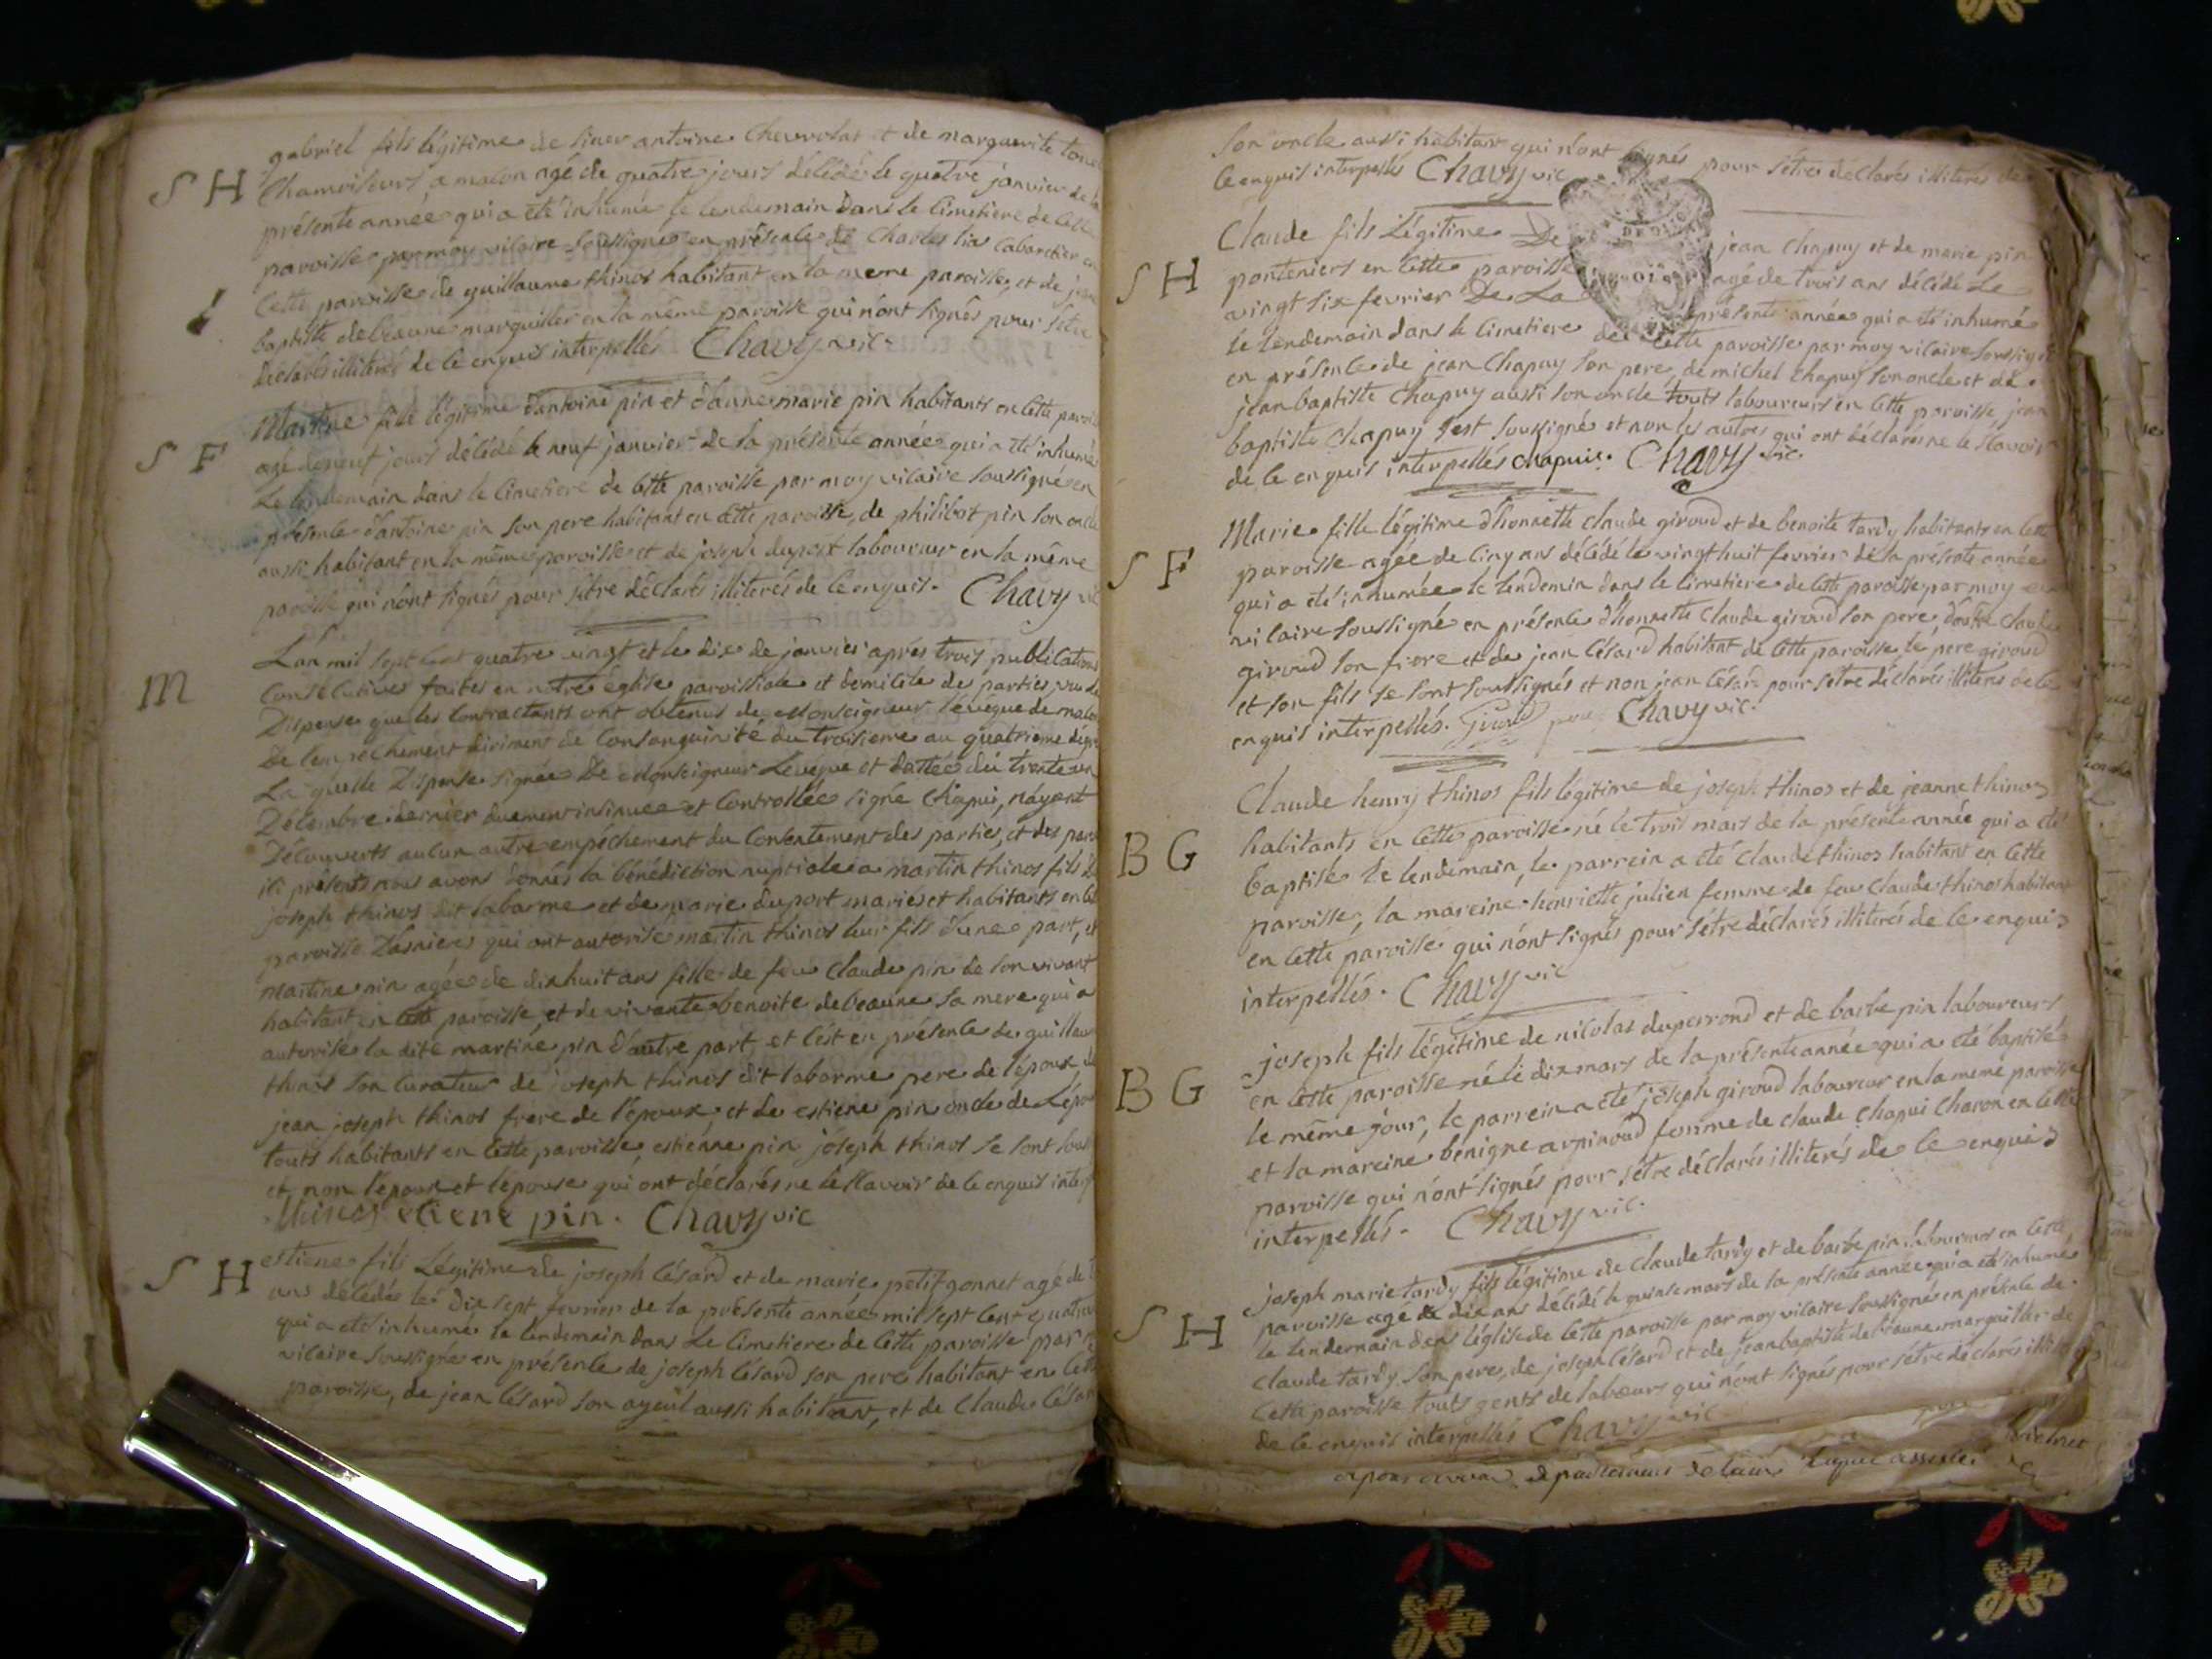 gabriel fils légitime de sieur antoine Chevrolat et de marguerite
S H
Chamoiseurs a macon agé de quatre jours décédé le quatre janvier de la
présente année qui a été inhumé le lendemain dans le Cimetiere de cette
paroisse par moy vicaire soussigné en présence de Charles lia Cabaretier en
Cette paroisse de guillaume thinos habitant en la meme paroisse, et de jean
baptiste debeaune marguillier en la même paroisse qui n'ont signés pour s'être
déclarés illiterés de ce enquis interpellés Chavy vic.
Martine fille légitime d'antoine pin et d'anne marie pin habitants en Cette paroisse
S F
agé de neuf jours décédé le neuf janvier de la présente année qui a été inhumé
Le lendemain dans le Cimetiere de Cette paroisse par moy vicaire soussigné en
présence d'antoine pin son pere habitant en Cette paroisse, de philibert pin son oncle
aussi habitant en la même paroisse et de joseph duport laboureur en la même
paroisse qui n'ont signés pour s'être déclarés illiterés de ce enquis. Chavy vic
M
L'an mil sept Cent quatre vingt et le dix de janvier après trois publications
Consécutives faites en notre église paroissiale et domicile des parties, vu la
Dispense que les Contractants ont obtenus de Monseigneur L'evêque de macon
De l'empechement diriment de Consanguinité du troisieme au quatrieme degré
La quelle Dispense signée De Monseigneur Levêque et dattée du trente un
Décembre dernier duement insinuée et Controllée signé Chapui, n'ayant
Découverts aucun autre empêchement du Consentement des parties, et des parents
ici présents nous avons donnés la bénédiction nuptiale a martin thinos fils de
joseph thinos dit labarme et de marie duport mariés et habitants en Cette
paroisse D'asnieres qui ont autorisé martin thinos leur fils d'une part, et
martine pin agée de dix huit ans fille de feu Claude pin de son vivant
habitant en Cette paroisse, et de vivante benoite debeaune sa mere qui a
autorisé la dite martine pin d'autre part et C'est en présence de guillaume
thinos son Curateur de joseph thinos dit labarme pere de l'époux, de
jean joseph thinos frere de l'époux, et de estiene pin oncle de L'épouse
touts habitants en Cette paroisse, estienne pin joseph thinos se sont sous
et non l'époux et l'épouse qui ont déclarés ne le sçavoir de ce enquis interp
thinos etiene pin. Chavy vic
S H
estiene fils Légitime de joseph Césard et de marie petitjonnet agé de
ans décédé le dix sept fevrier de la présente année mil sept cent quatre
qui a été inhumé le lendemain dans Le Cimetiere de Cette paroisse par
vicaire soussigné en présence de joseph Césard son pere habitant en Cette
paroisse, de jean Césard son ayeul aussi habitant, et de Claude Césard
Son oncle aussi habitant qui n'ont signés pour s'être déclarés illiterés de
Ce enquis interpellés Chavy vic
Claude fils Légitime De jean Chapuy et de marie pin
S H
ponteniers en Cette paroisse agé de trois ans décédé Le
vingt six fevrier De La présente année qui a été inhumé
le lendemain dans le Cimetiere de Cette paroisse par moy vicaire soussigné
en présence de jean Chapuy son pere, de michel Chapuy son oncle et de
jean baptiste Chapuy aussi son oncle touts laboureurs en Cette paroisse, jean
baptiste Chapuy s'est soussigné et non les autres qui ont déclarés ne le sçavoir
de ce enquis interpellés chapuis. Chavy vic.
Marie fille légitime d'honnette Claude giroud et de benoite tardy habitants en Cette
S F
paroisse agée de cinq ans décédé le vingt huit fevrier de la présente année
qui a été inhumée le lendemin dans le Cimetiere de Cette paroisse par moy
vicaire soussigné en présence d'honnette Claude giroud son pere, d'autre Claude
giroud son frere et de jean Césard habitant de Cette paroisse, le pere giroud
et son fils se sont soussignés et non jean Césard pour s'être déclarés illiterés de ce
enquis interpellés. Giroud Chavy vic.
Claude henry thinos fils légitime de joseph thinos et de jeanne thinos
B G
habitants en Cette paroisse né le trois mars de la présente année qui a été
baptisé le lendemain, le parrein a été Claude thinos habitant en Cette
paroisse, la mareine henriette julien femme de feu Claude thinos habitant
en Cette paroisse qui n'ont signés pour s'être déclarés illiterés de ce enquis
interpellés. Chavy vic
joseph fils légitime de nicolas duperrond et de barbe pin laboureurs
B G
en Cette paroisse né le dix mars de la présente année qui a été baptisé
le même jour, le parrein a été joseph giroud laboureur en la meme paroisse
et la mareine benigne arpinoud femme de Claude Chapui Charon en Cette
paroisse qui n'ont signés pour s'être déclarés illiterés de ce enquis
interpellés. Chavy vic.
joseph marie tardy fils légitime de Claude tardy et de barbe pin laboureurs en Cette
S H
paroisse agé de dix ans décédé le quinze mars de la présente année qui a été inhumé
le lendemain dans l'église de Cette paroisse par moy vicaire soussigné en présence de
Claude tardy son pere, de joseph Césard et de jean baptiste debeaune marguillier de
Cette paroisse touts gents de labeurs qui n'ont signés pour s'être déclarés illiterés
de ce enquis interpellés Chavy vic